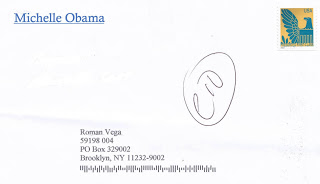 Michelle Obama
USA
Roman Vega
59198 004
PO Box 329002
Brooklyn, NY 11232-9002